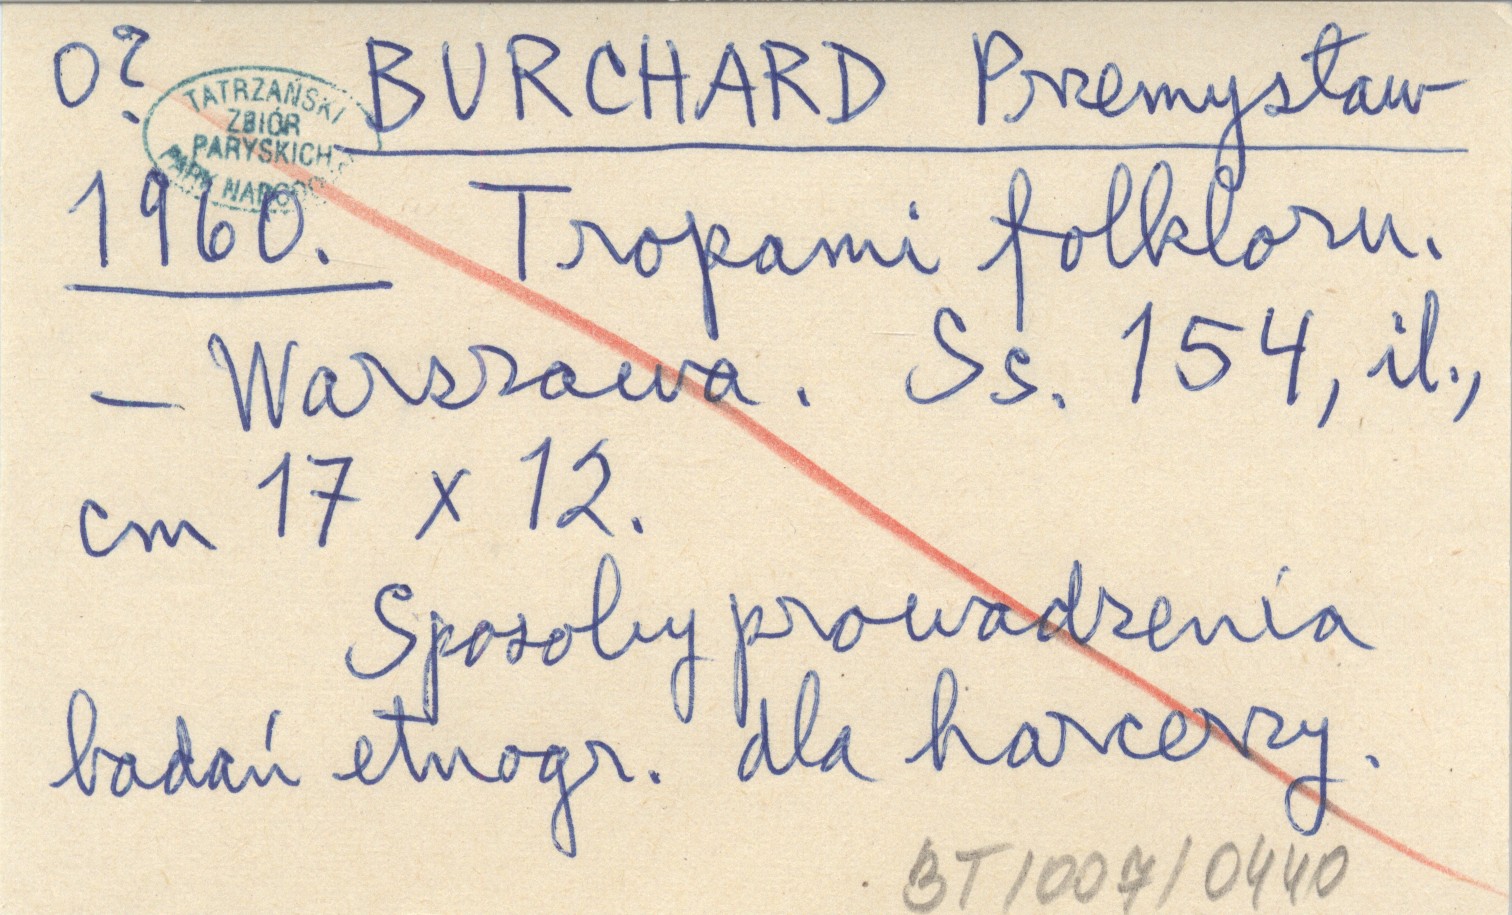 O? BURCHARD Przemysław
TATRZAŃSKI
ZBIÓR
PARYSKICH
PARK NARODO
1960. Tropami folkloru.
– Warszawa. Ss. 154, il.,
cm 17 x 12.
Sposoby prowadzenia
badań etnogr. dla harcerzy.
BT/007/0440